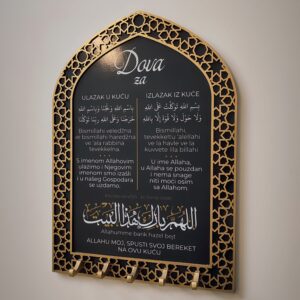 Dova
za
ULAZAK U KUĆU
بِسْمِ اللَّهِ وَلَجْنَا وَبِسْمِ اللَّهِ
خَرَجْنَا وَعَلَى اللَّهِ رَبِّنَا تَوَكَّلْنَا
Bismillahi veledžna
ve bismillahi haredžna
ve 'ala rabbina
tevekkelna.
S imenom Allahovim
ulazimo i Njegovim
imenom smo izašli
i u našeg Gospodara
se uzdamo.
IZLAZAK IZ KUĆE
بِسْمِ اللَّهِ تَوَكَّلْتُ عَلَى اللَّهِ
لَا حَوْلَ وَلَا قُوَّةَ إِلَّا بِاللَّهِ
Bismillahi,
tevekkeltu 'alellahi
ve la havle ve la
kuvvete illa billahi
U ime Allaha,
u Allaha se pouzdan
i nema snage
niti moći osim
sa Allahom.
اللهم بارك هذا البيت
Allahumme barik hazel bejt
ALLAHU MOJ, SPUSTI SVOJ BEREKET
NA OVU KUĆU